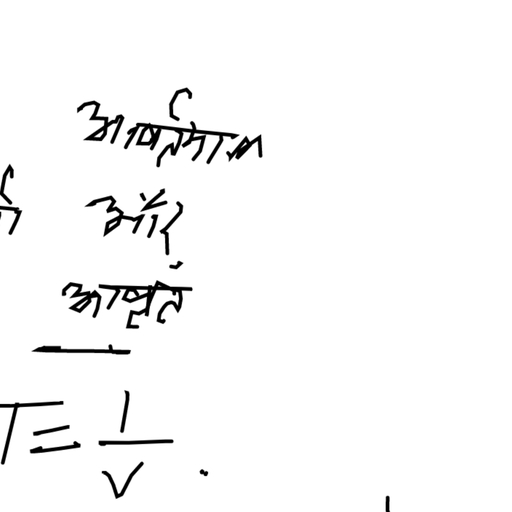 आवर्तकाल
और
आवृति
T = 1/ν.